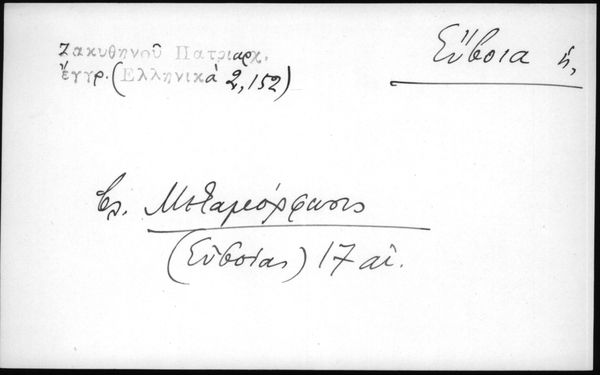 Ζακυθηνοῦ Πατριαρχ.
ἔγγρ. (Ἑλληνικὰ 2,152)
Εὔβοια ἡ,
βλ. Μεταμόρφωσις
(Εὐβοίας) 17 αἰ.